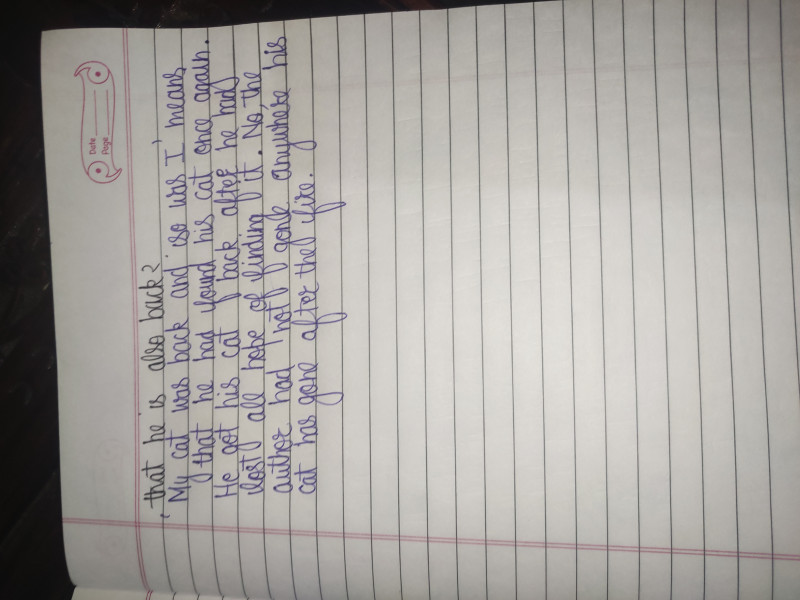 Date
Page
that he is also back?
'My cat was back and so was I' means
that he had found his cat once again.
He got his cat back after he had
lost all hope of finding it. No the
author had not gone anywhere his
cat has gone after the fire.